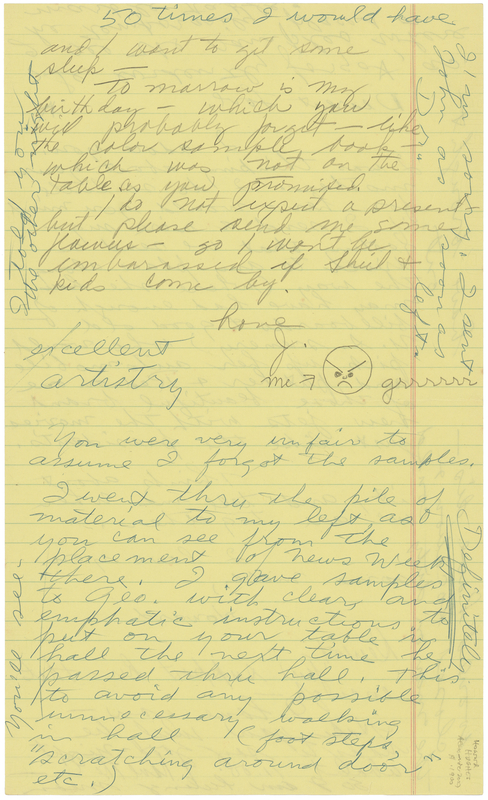 50 times I would have
and I want to get some
sleep —
Tomorrow is my
birthday — which you
will probably forget — like
the color sample book —
which was not on the
table as you promised.
I do not expect a present
but please send me some
flowers — so I won't be
embarassed if Shul +
kids come by.
Love
J.
me → grrrrrrr
excellent
artistry
You were very unfair to
assume I forgot the samples.
I went thru the pile of
material to my left as
you can see from the
placement of News Week
there. I gave samples
to Geo. with clear, and
emphatic instructions to
put on your table in
hall the next time he
passed thru hall. This
to avoid any possible
unnecessary walking
in hall (foot steps,
"scratching around door"
etc.)
Definitely
You see,
I'm sorry. I sent
John as soon as
left.